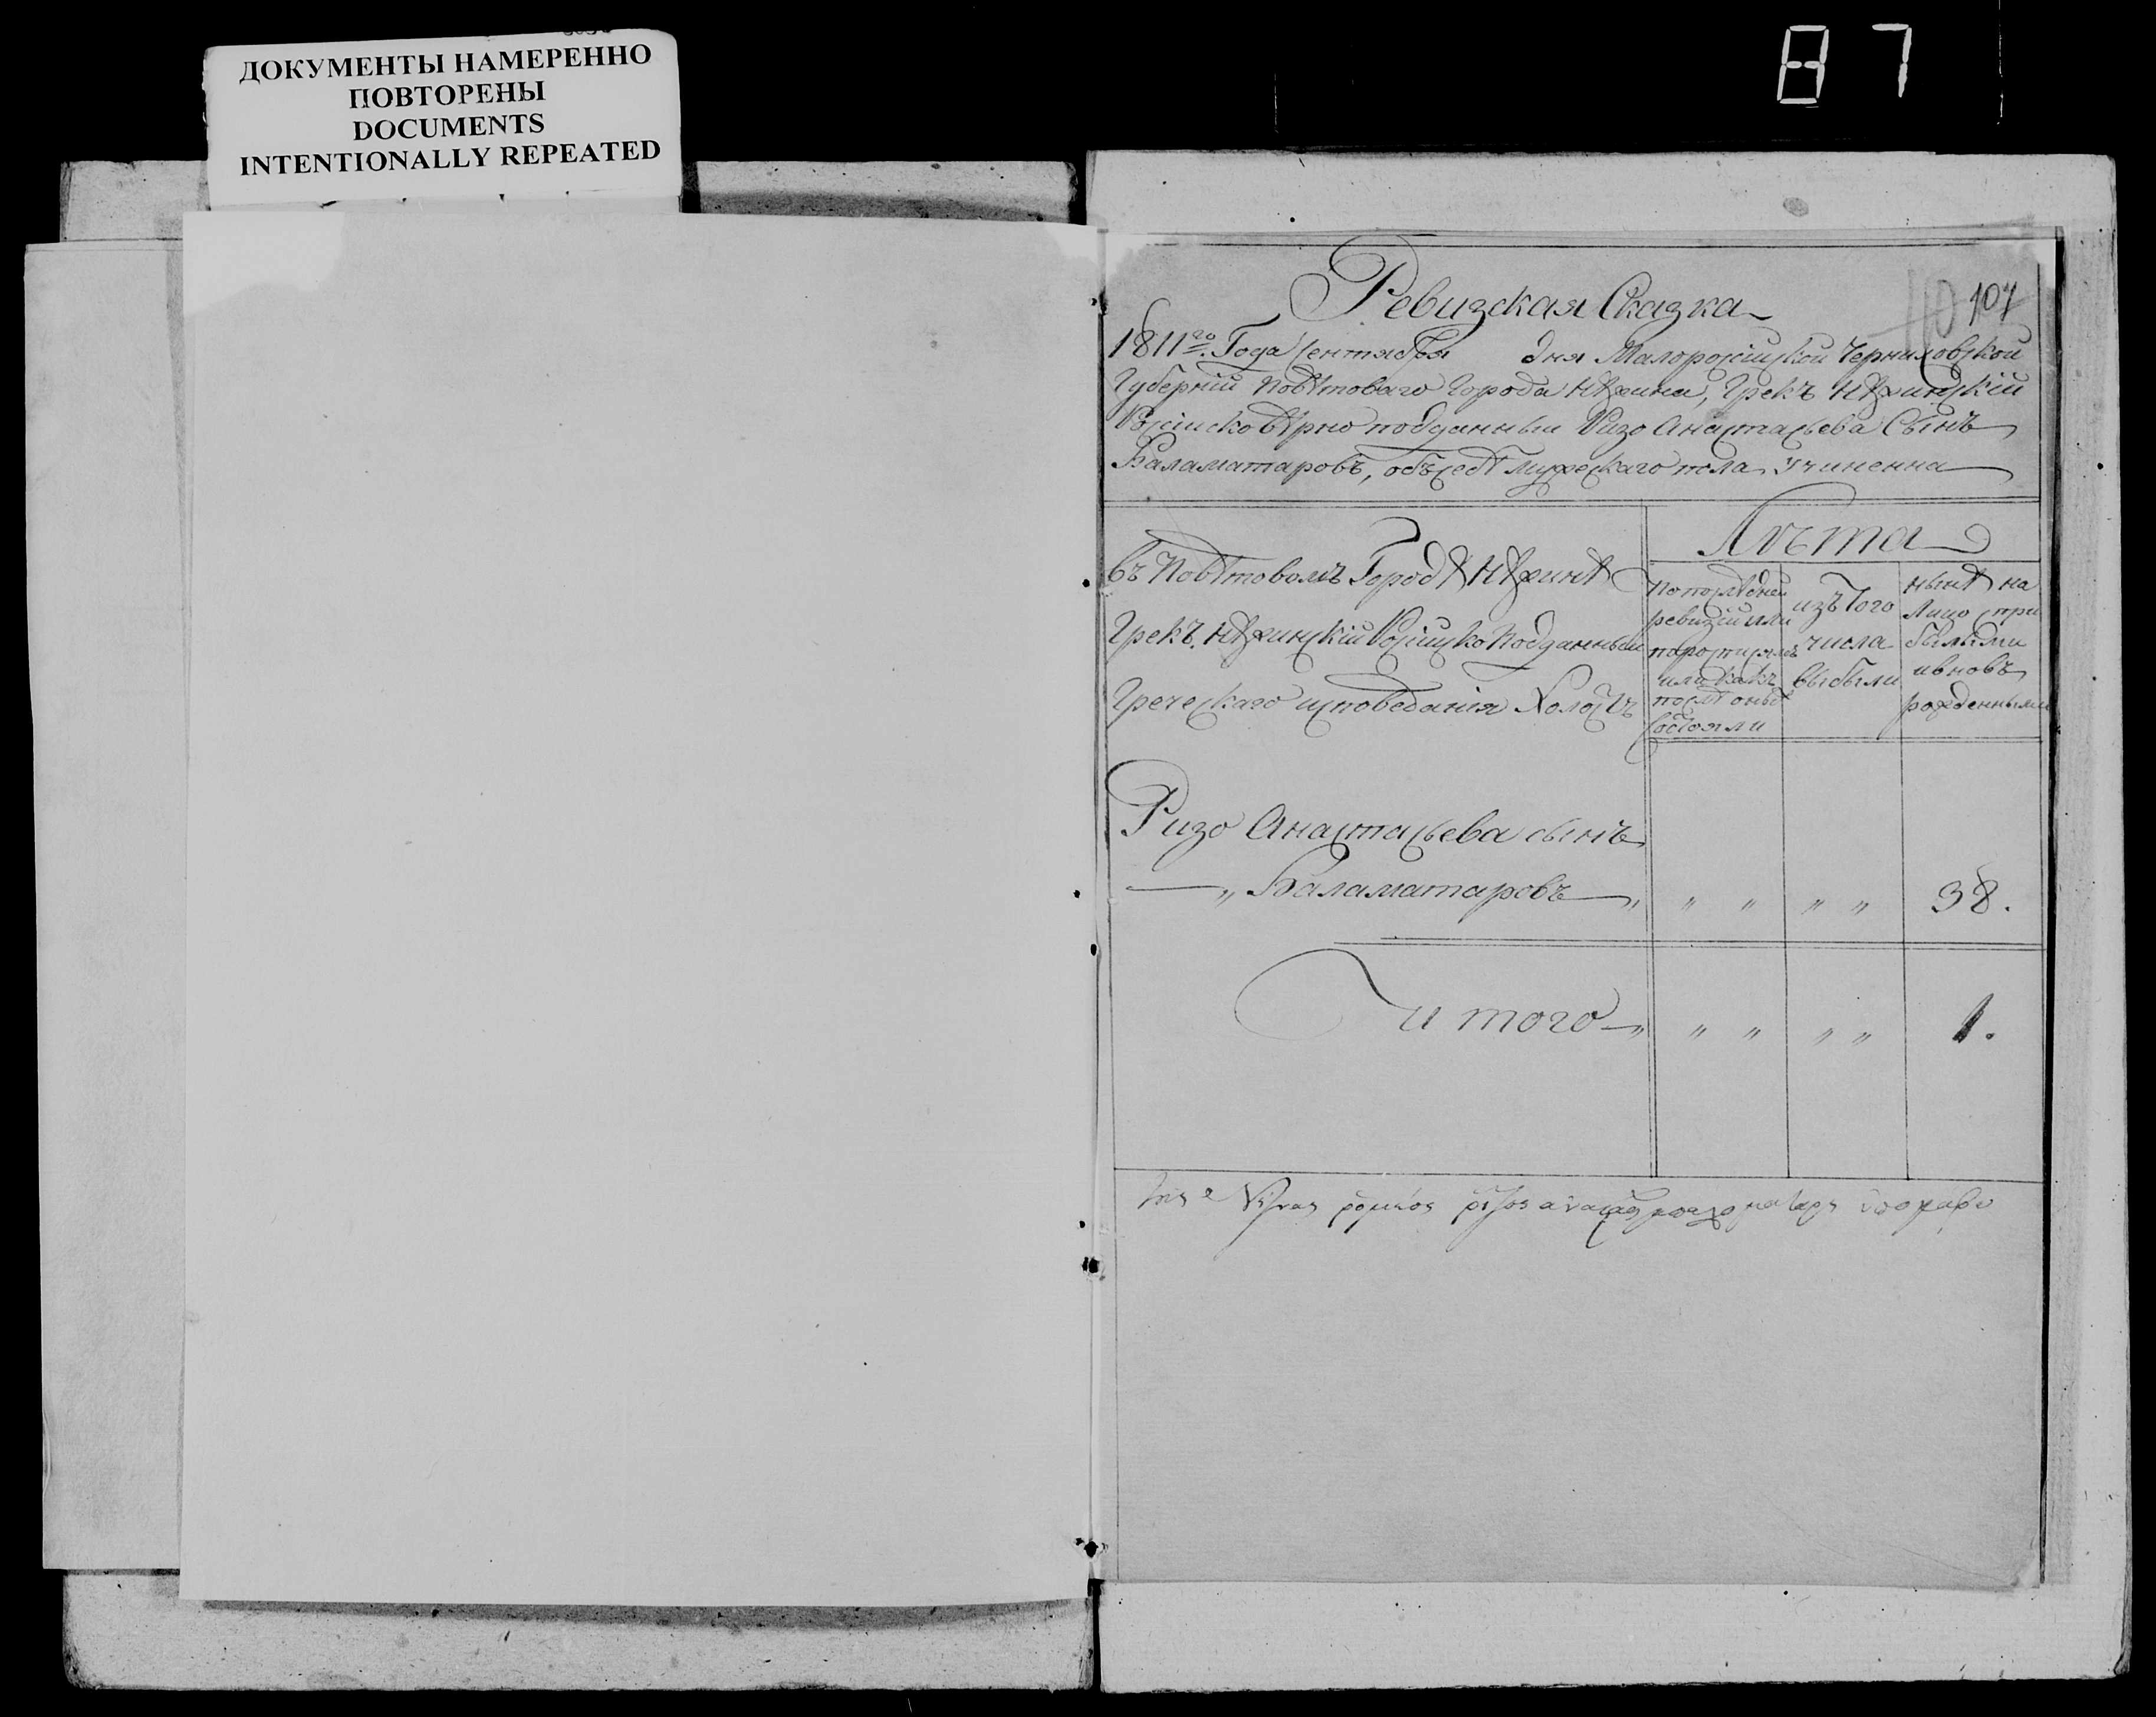 ДОКУМЕНТЫ НАМЕРЕННО
ПОВТОРЕНЫ
DOCUMENTS
INTENTIONALLY REPEATED
87
107
Ревизская Сказка
1811го. Года Сентября дня Малоросіиской Черниговской
Губерніи Повѣтоваго Города Нѣжина, Грекъ Нѣжинскій
Росіиско вѣрно подданныи Ризо Анастасьева Сынъ
Баламатаровъ, объ себѣ мужескаго пола Учиненна
Лѣта
въ Повѣтовомъ Городѣ Нѣжинѣ
Грекъ Нѣжинскій Росіиско Подданныи
Греческаго исповеданія Холостъ
По последней
ревизіи или
или какъ
после оныя
состояли
изъ того
числа
выбыли
нынѣ на
лицо при
былыми
и вновъ
рожденными
Ризо Анастасьева сынъ
— „ Баламатаровъ — „ „ „ „ „ 38.
и того — „ „ „ „ „ 1.
ρομεος ριζος αναστας μπαλαματαρη υπογραφο